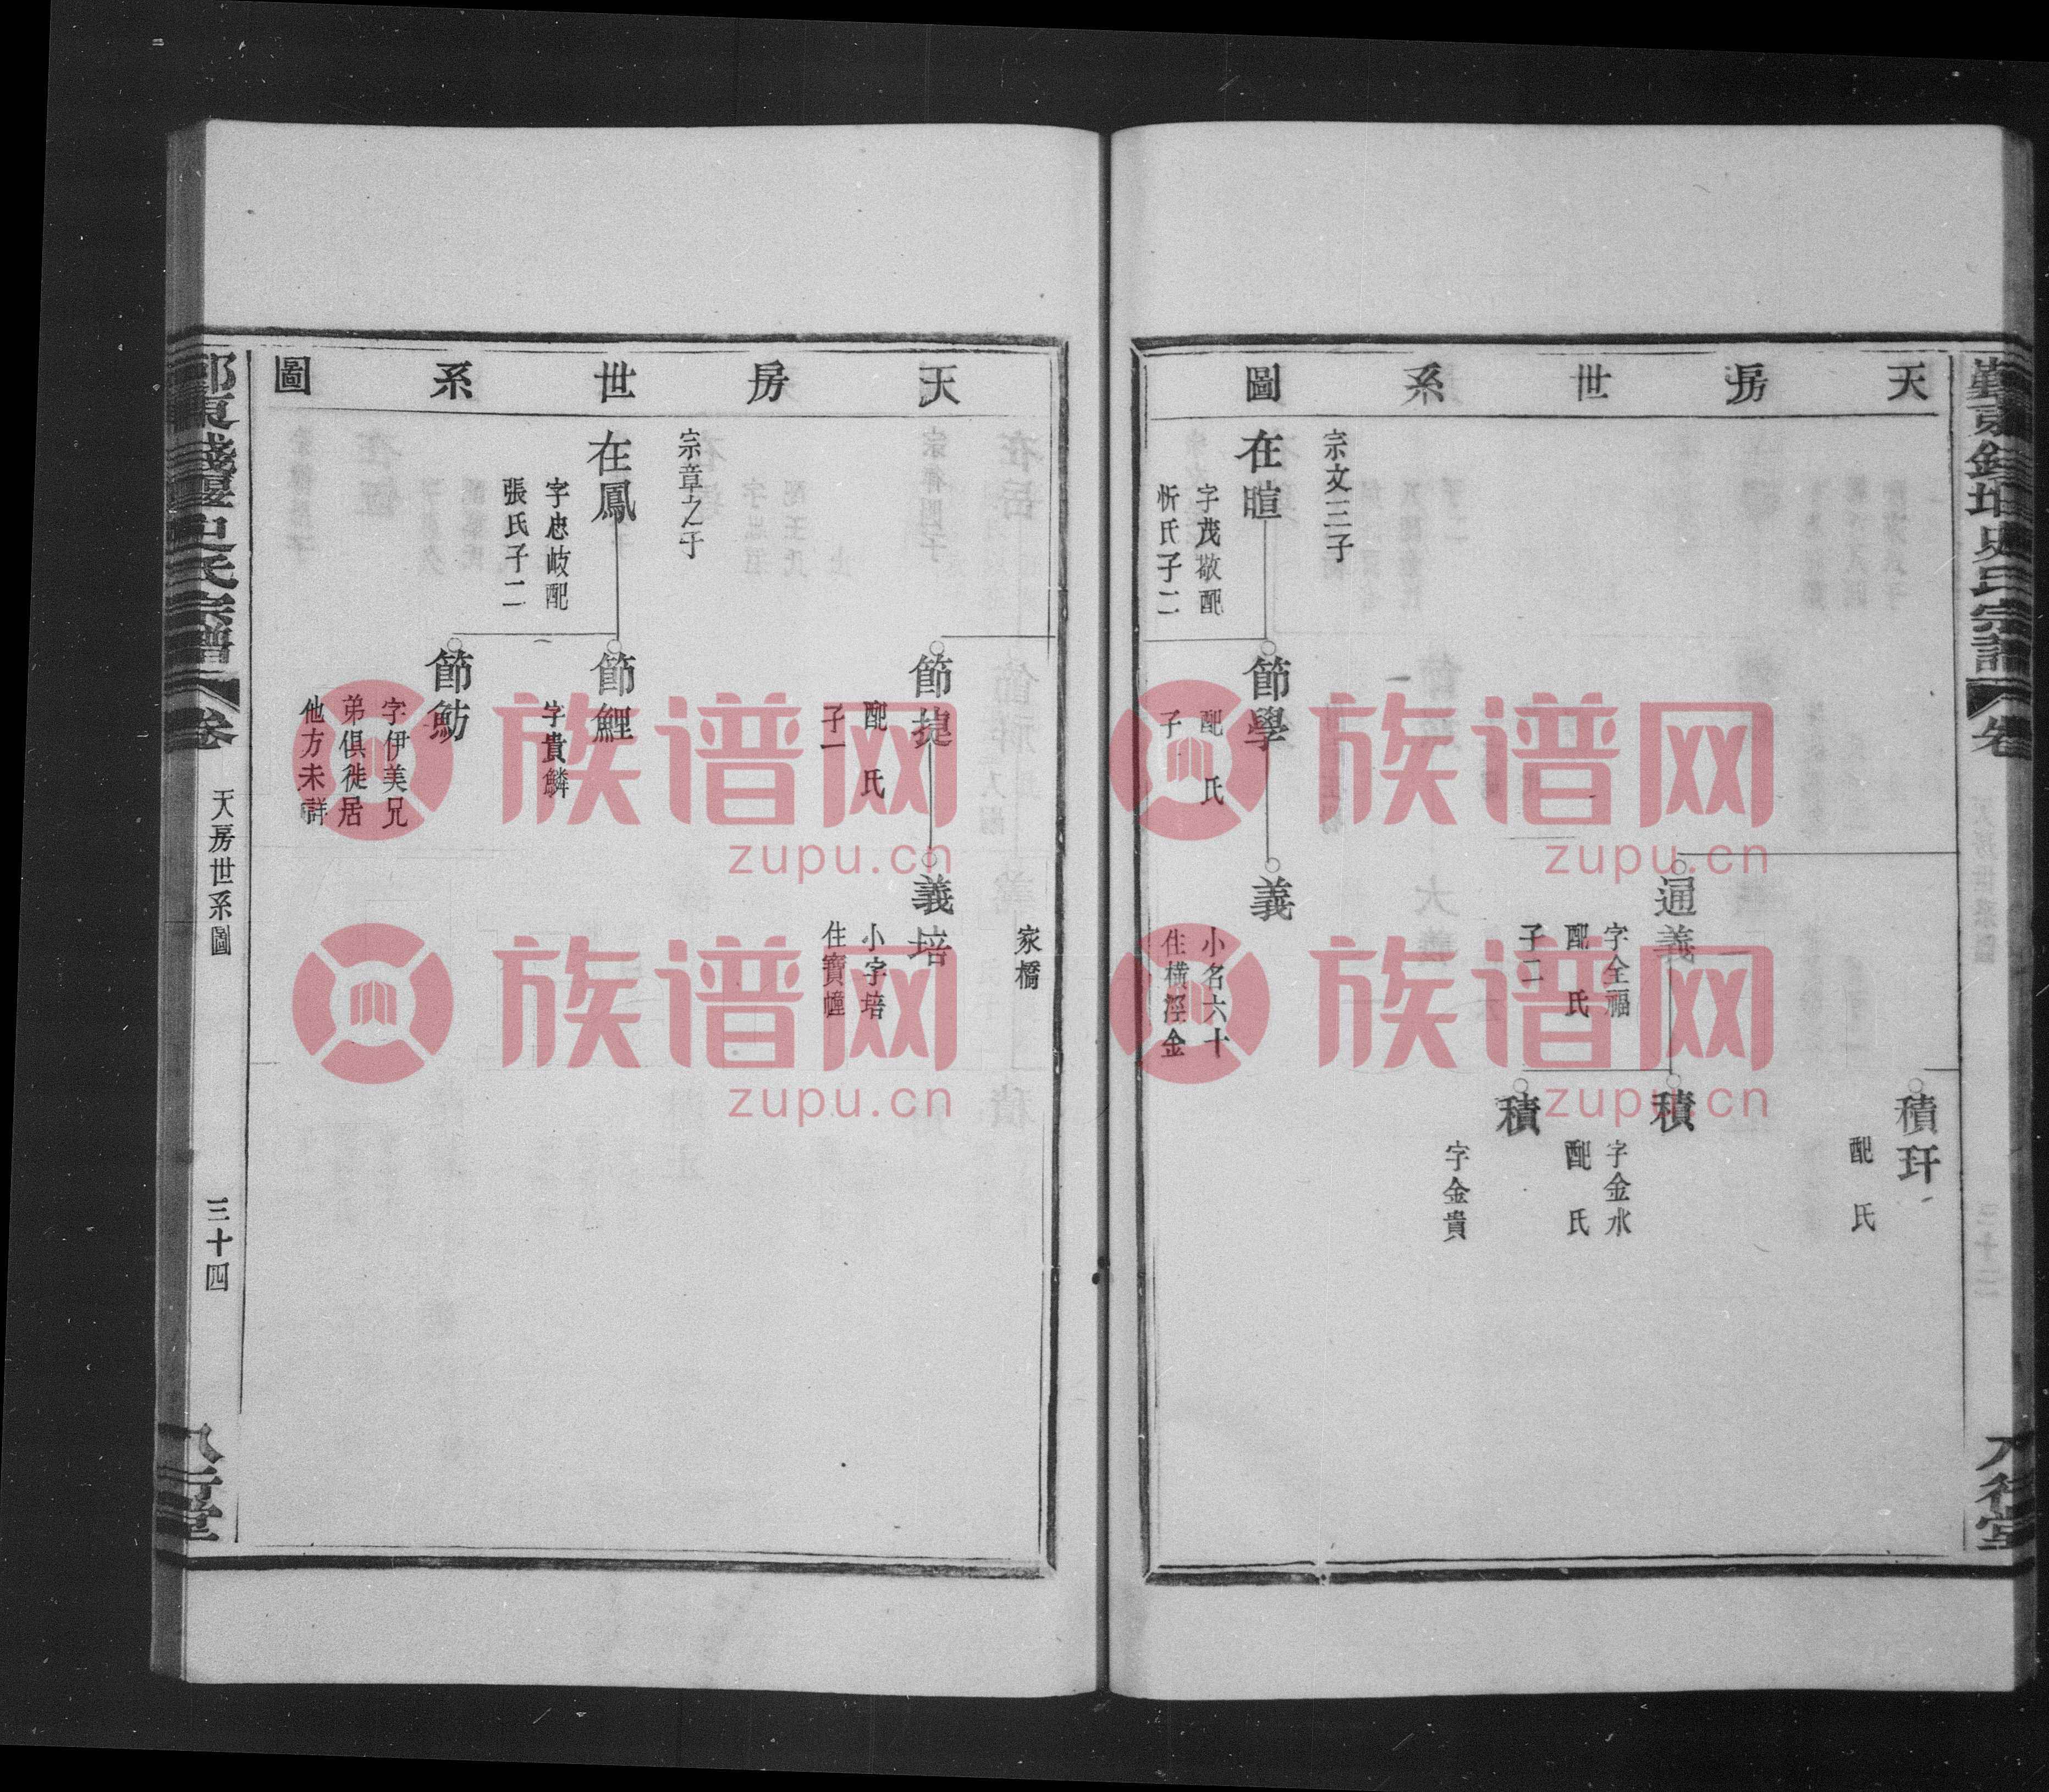 天房世系圖
積玕
配 氏
通義
字全福
配 氏
子二
積
字金水
配 氏
積
字金貴
宗文三子
在暄
字茂敬配
忻氏子二
節學
配 氏
子
義
小名六十
住橫涇金
天房世系圖
家橋
節捷
配 氏
子一
義培
小字培
住寶幢
宗章之子
在鳳
字忠岐配
張氏子二
節鯉
字貴鱗
節魴
字伊美兄
弟俱徙居
他方未詳
史氏宗譜
卷
天房世系圖
三十四
八行堂
族谱网
zupu.cn
族谱网
zupu.cn
族谱网
zupu.cn
族谱网
zupu.cn